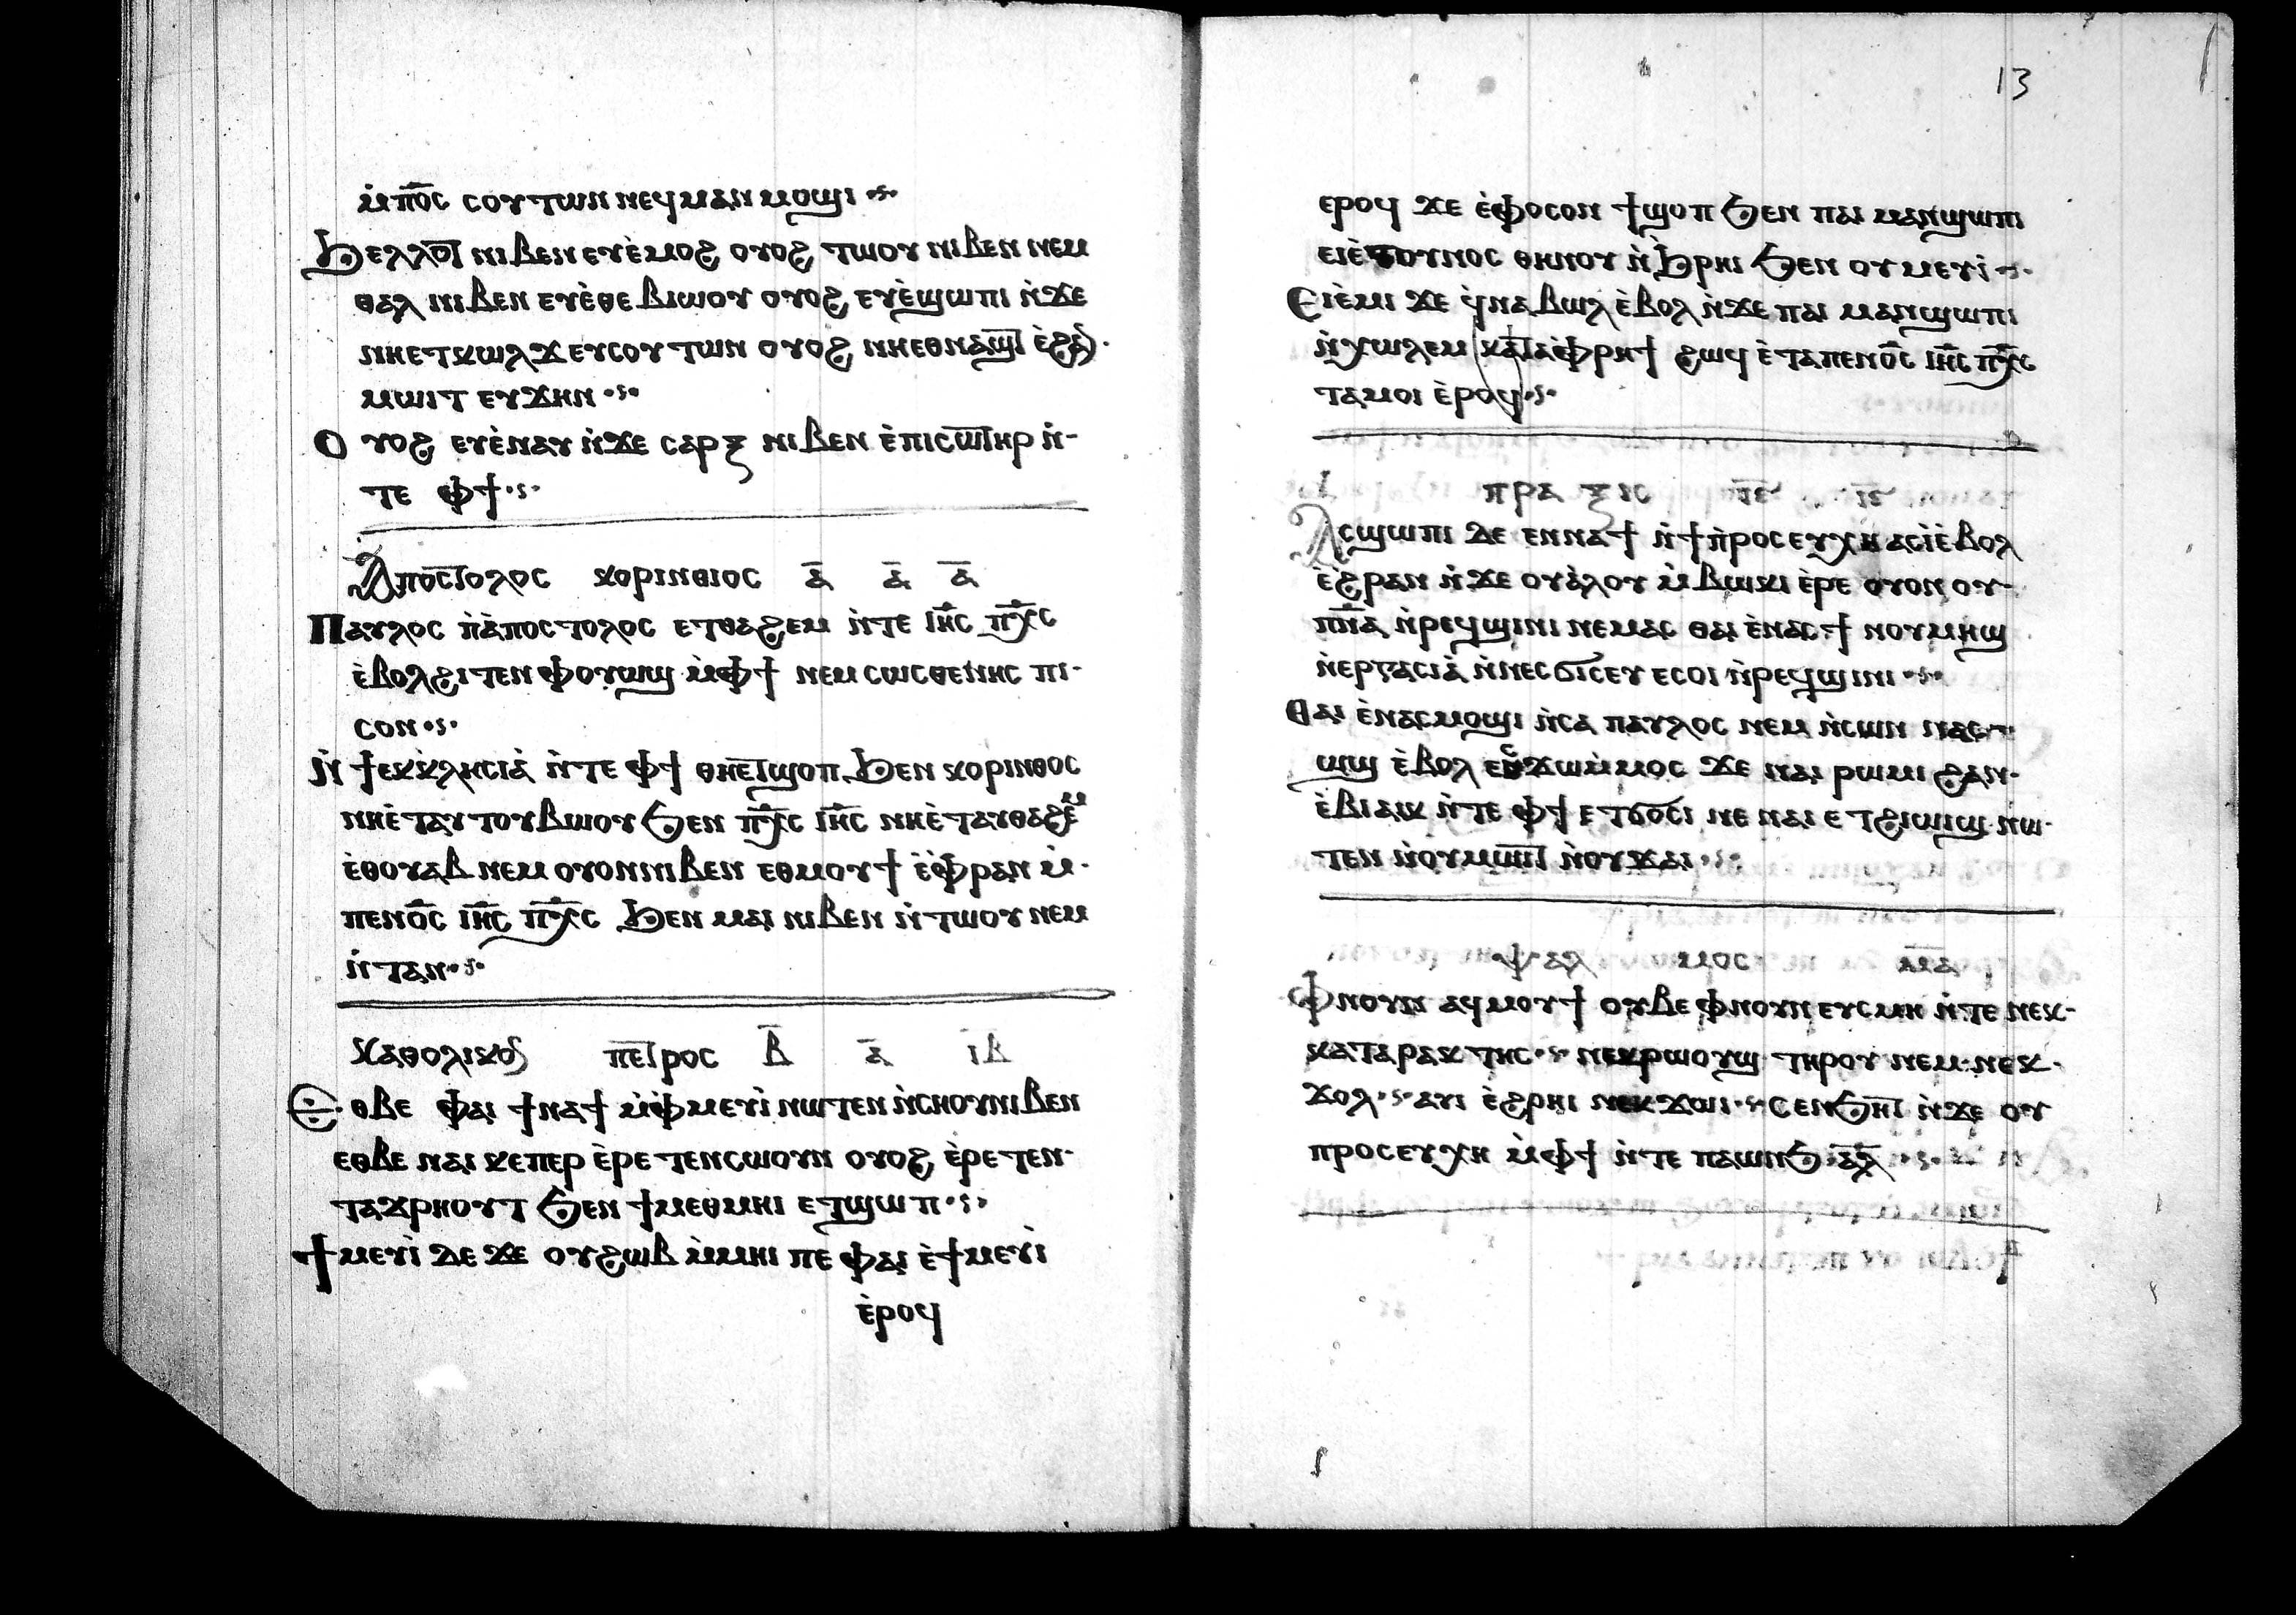 ⲙ̀ⲡⲟ̅ⲥ ⲥⲟⲩⲧⲱⲛ ⲛⲉϥⲙⲁⲛⲙⲟϣⲓ
ϧⲉⲗⲗⲟⲧ ⲛⲓⲃⲉⲛ ⲉⲩⲉ̀ⲙⲟϩ ⲟⲩⲟϩ ⲧⲱⲟⲩ ⲛⲓⲃⲉⲛ ⲛⲉⲙ
ⲑⲁⲗ ⲛⲓⲃⲉⲛ ⲉⲩⲉ̀ⲑⲉⲃⲓⲱⲟⲩ ⲟⲩⲟϩ ⲉⲩⲉ̀ϣⲱⲡⲓ ⲛ̀ϫⲉ
ⲛⲏⲉⲧⲕⲱⲗϫ ⲉⲩⲥⲟⲩⲧⲱⲛ ⲟⲩⲟϩ ⲛⲏⲉⲑⲛⲁϣⲧ ⲉ̀ϩⲁⲛ
ⲙⲱⲓⲧ ⲉⲩϫⲏⲛ
ⲟⲩⲟϩ ⲉⲩⲉ̀ⲛⲁⲩ ⲛ̀ϫⲉ ⲥⲁⲣⲝ ⲛⲓⲃⲉⲛ ⲉ̀ⲡⲓⲥⲱⲧⲏⲣ ⲛ̀-
ⲧⲉ ⲫϯ
Ⲁⲡⲟⲥⲧⲟⲗⲟⲥ ⲕⲟⲣⲓⲛⲑⲓⲟⲥ ⲁ̅ ⲁ̅ ⲁ̅
Ⲡⲁⲩⲗⲟⲥ ⲡⲓⲁ̀ⲡⲟⲥⲧⲟⲗⲟⲥ ⲉⲧⲑⲁϩⲉⲙ ⲛ̀ⲧⲉ ⲓⲏ̅ⲥ ⲡⲭ̅ⲥ
ⲉ̀ⲃⲟⲗϩⲓⲧⲉⲛ ⲫⲟⲩⲱϣ ⲙ̀ⲫϯ ⲛⲉⲙ ⲥⲱⲥⲑⲉⲛⲏⲥ ⲡⲓ-
ⲥⲟⲛ
ⲛ̀ϯⲉⲕⲕⲗⲏⲥⲓⲁ̀ ⲛ̀ⲧⲉ ⲫϯ ⲑⲏⲉⲧϣⲟⲡ ϧⲉⲛ ⲕⲟⲣⲓⲛⲑⲟⲥ
ⲛⲏⲉ̀ⲧⲁⲩⲧⲟⲩⲃⲱⲟⲩ ϧⲉⲛ ⲡⲭ̅ⲥ ⲓⲏ̅ⲥ ⲛⲏⲉ̀ⲧⲁⲩⲑⲁϩⲉⲙ
ⲉ̀ⲑⲟⲩⲁⲃ ⲛⲉⲙ ⲟⲩⲟⲛⲛⲓⲃⲉⲛ ⲉⲑⲙⲟⲩϯ ⲉ̀ⲫⲣⲁⲛ ⲙ̀-
ⲡⲉⲛⲟ̅ⲥ ⲓⲏ̅ⲥ ⲡⲭ̅ⲥ ϧⲉⲛ ⲙⲁⲓ ⲛⲓⲃⲉⲛ ⲛ̀ⲧⲱⲟⲩ ⲛⲉⲙ
ⲛ̀ⲧⲁⲛ
ⲕⲁⲑⲟⲗⲓⲕⲟⲛ ⲡⲉⲧⲣⲟⲥ ⲃ̅ ⲁ̅ ⲓ̅ⲃ̅
Ⲉⲑⲃⲉ ⲫⲁⲓ ϯⲛⲁϯ ⲙ̀ⲫⲙⲉⲩⲓ̀ ⲛⲱⲧⲉⲛ ⲛ̀ⲥⲏⲟⲩ ⲛⲓⲃⲉⲛ
ⲉⲑⲃⲉ ⲛⲁⲓ ⲕⲉⲡⲉⲣ ⲉ̀ⲣⲉⲧⲉⲛⲥⲱⲟⲩⲛ ⲟⲩⲟϩ ⲉ̀ⲣⲉⲧⲉⲛ-
ⲧⲁϫⲣⲏⲟⲩⲧ ϧⲉⲛ ϯⲙⲉⲑⲙⲏⲓ ⲉⲧϣⲱⲡ
ϯⲙⲉⲩⲓ̀ ⲇⲉ ϫⲉ ⲟⲩϩⲱⲃ ⲙ̀ⲙⲏⲓ ⲡⲉ ⲫⲁⲓ ⲉ̀ϯⲙⲉⲩⲓ̀
ⲉ̀ⲣⲟϥ
13
ⲉⲣⲟϥ ϫⲉ ⲉ̀ⲫⲟⲥⲟⲛ ϯϣⲟⲡ ϧⲉⲛ ⲡⲁⲓ ⲙⲁⲛϣⲱⲡⲓ
ⲉⲓⲉ̀ⲧⲟⲩⲛⲟⲥ ⲑⲏⲛⲟⲩ ⲛ̀ϧⲣⲏⲓ ϧⲉⲛ ⲟⲩⲙⲉⲩⲓ̀
Ⲉⲓⲉ̀ⲙⲓ ϫⲉ ϥ̀ⲛⲁⲃⲱⲗ ⲉ̀ⲃⲟⲗ ⲛ̀ϫⲉ ⲡⲁⲓ ⲙⲁⲛϣⲱⲡⲓ
ⲛ̀ⲭⲱⲗⲉⲙ ⲕⲁⲧⲁ ⲫⲣⲏϯ ϩⲱϥ ⲉ̀ⲧⲁⲡⲉⲛⲟ̅ⲥ ⲓⲏ̅ⲥ ⲡⲭ̅ⲥ
ⲧⲁⲙⲟⲓ ⲉ̀ⲣⲟϥ
ⲡⲣⲁⲝⲓⲥ ⲓ̅ⲉ̅ ⲓ̅ⲋ̅
Ⲁⲥϣⲱⲡⲓ ⲇⲉ ⲉⲛⲛⲁϯ ⲛ̀ϯⲡⲣⲟⲥⲉⲩⲭⲏ ⲁⲥⲓ̀ⲉ̀ⲃⲟⲗ
ⲉ̀ϩⲣⲁⲛ ⲛ̀ϫⲉ ⲟⲩⲁ̀ⲗⲟⲩ ⲙ̀ⲃⲱⲕⲓ ⲉ̀ⲣⲉ ⲟⲩⲟⲛ ⲟⲩ-
ⲡⲛ̅ⲁ ⲛ̀ⲣⲉϥϣⲓⲛⲓ ⲛⲉⲙⲁⲥ ⲑⲁⲓ ⲉ̀ⲛⲁⲥϯ ⲛⲟⲩⲙⲏϣ
ⲛ̀ⲉⲣⲅⲁⲥⲓⲁ̀ ⲛ̀ⲛⲉⲥϭⲓⲥⲉⲩ ⲉⲥⲟⲓ ⲛ̀ⲣⲉϥϣⲓⲛⲓ
Ⲑⲁⲓ ⲉ̀ⲛⲁⲥⲙⲟϣⲓ ⲛ̀ⲥⲁ ⲡⲁⲩⲗⲟⲥ ⲛⲉⲙ ⲛ̀ⲥⲱⲛ
ⲱϣ ⲉ̀ⲃⲟⲗ ⲉⲥϫⲱⲙ̀ⲙⲟⲥ ϫⲉ ⲛⲁⲓ ⲣⲱⲙⲓ ϩⲁⲛ-
ⲉ̀ⲃⲓⲁⲓⲕ ⲛ̀ⲧⲉ ⲫϯ ⲉⲧϭⲟⲥⲓ ⲛⲉ ⲛⲁⲓ ⲉⲧϩⲓⲱⲓϣ ⲛⲱ-
ⲧⲉⲛ ⲛ̀ⲟⲩⲙⲱⲓⲧ ⲛ̀ⲟⲩϫⲁⲓ
ⲯⲁⲗⲙⲟⲥ ⲙ̅ⲁ̅
Ⲫⲛⲟⲩⲛ ⲁϥⲙⲟⲩϯ ⲟⲩⲃⲉ ⲫⲛⲟⲩⲛ ⲉⲩⲥⲙⲏ ⲛ̀ⲧⲉ ⲛⲉⲕ-
ⲕⲁⲧⲁⲣⲁⲕⲧⲏⲥ ⲛⲉⲕⲣⲱⲟⲩϣ ⲧⲏⲣⲟⲩ ⲛⲉⲙ ⲛⲉⲕ-
ϫⲟⲗ ⲁⲩⲓ ⲉ̀ϩⲣⲏⲓ ⲥⲉⲛϧⲏⲧ ⲛ̀ϫⲉ ⲟⲩ
ⲡⲣⲟⲥⲉⲩⲭⲏ ⲙ̀ⲫϯ ⲛ̀ⲧⲉ ⲡⲁⲱⲛϧ ⲁ̅ⲗ̅